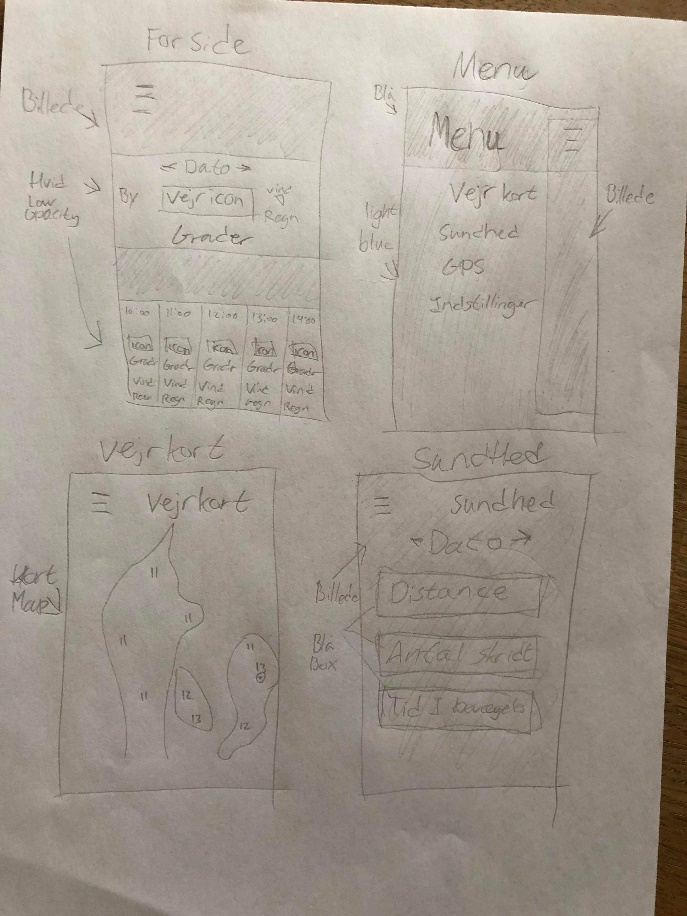 Forside
Billede
Hvid
Low
Opacity
← Dato →
By
Vejr icon
vind
Regn
Grader
10:00 11:00 12:00 13:00 14:00
Icon Icon Icon Icon Icon
Grader Grader Grader Grader Grader
Vind Vind Vind Vind Vind
Regn Regn Regn Regn Regn
Menu
Blå
Menu
light
blue
Billede
Vejr kort
Sundhed
GPS
Indstillinger
Vejrkort
Vejrkort
Kort
Map
11
11
11
11
12
13
11
13
12
Sundhed
sundhed
← Dato →
Billede
Blå
Box
Distance
Antal skridt
Tid I bevægels